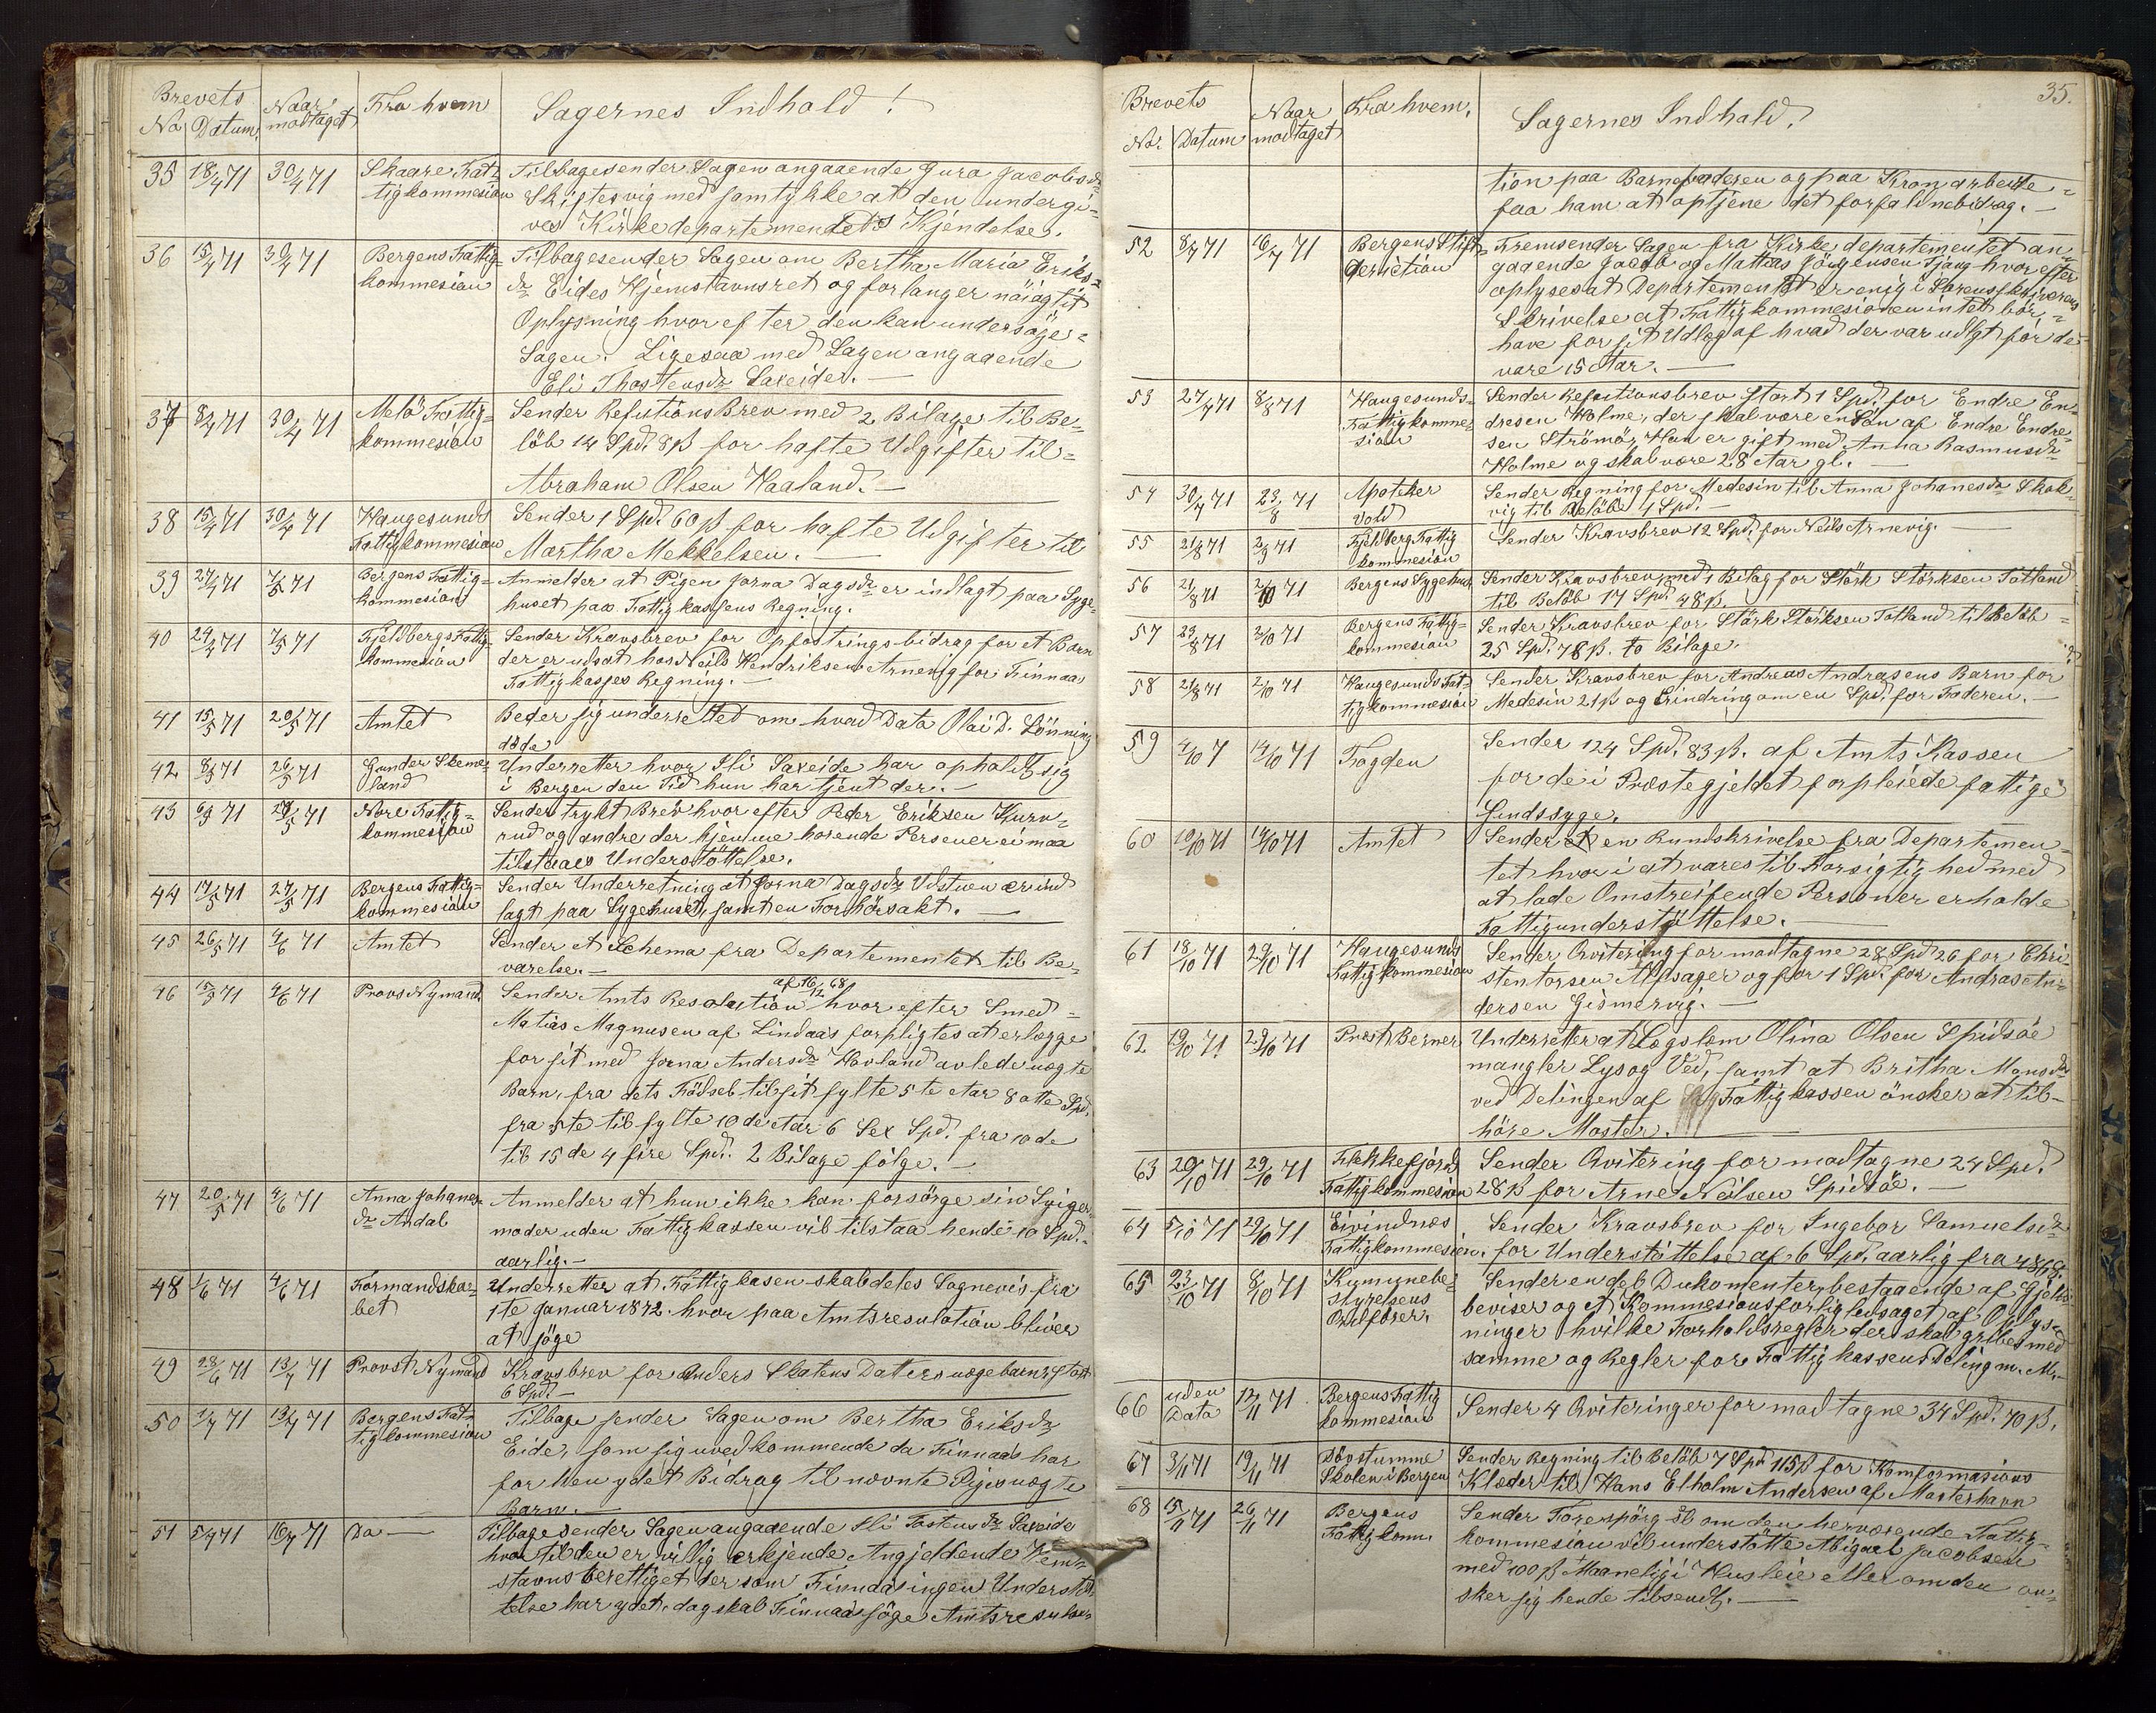 Brevets
No Datum. Naar modtaget Fra hvem Sagernes Indhold!
35 18/4 71 30/4 71 Skaare Fattigkommesion Tilbagesender Sagen angaaende Gura Jacobsdr
Skiftesvig med samtykke at den undergi-
ves Kirkedepartementets Kjendelse.
36 15/4 71 30/4 71 Bergens Fattig-kommesion Tilbagesender Sagen om Bertha Maria Eriks-
dr Eides Hjemstavnsret og forlanger nöiagtit
Oplysning hvorefter den kan undersöge
Sagen. Ligesaa med Sagen angaaende
Eli Thostensdr Saxeide. —
37 8/4 71 30/4 71 Melö Fattig-kommesion Sender RefutionsBrev med 2 Bilage til Be-
löb 14 Spd. 8 ß for hafte Udgifter til
Abraham Olsen Haaland. —
38 15/4 71 30/4 71 Haugesunds Fattigkommesion Sender 1 Spd. 60 ß for hafte Udgifter til
Martha Mekkelsen. —
39 27/4 71 7/5 71 Bergens Fattig-kommesion Anmelder at Pigen Gorna Dagsdr er indlagt paa Syge-
huset paa Fattigkassens Regning.
40 24/4 71 7/5 71 Fjeldbergs Fattig-kommesion Sender Kravsbrev for Opfostrings-bidrag for et Barn
der er udsat hos Neils Hendriksen Arnevig for Finnaas
Fattigkasses Regning. —
41 15/5 71 20/5 71 Amtet Beder sig underrettet om hvad Data Olai D. Lönning
döde
42 8/5 71 26/5 71 Gunder Skeme-land Underretter hvor Eli Saxeide har opholdt sig
i Bergen den Tid hun har tjent der. —
43 6/3 71 27/5 71 Nore Fattig-kommesion Sender trykt Brev hvorefter Peder Eriksen Kurv-
rud og andre der hjemme hörende Personer ei maa
tilstaaes Understöttelse.
44 17/5 71 27/5 71 Bergens Fattig-kommesion Sender Underretning at Gorna Dagsdr Udstuen er ind
lagt paa Sygehuset, samt en Forhörsakt. —
45 26/5 71 4/6 71 Amtet Sender et Schema fra Departementet til Be-
varelse. —
46 15/3 71 4/6 71 Provs Nymand. Sender Amts Resolution af 16/12 68 hvorefter Smed
Matias Magnusen af Lindaas forpligtes at erlægge
for sit med Gorna Andersdr Hovland avlede uægte
Barn, fra dets Födsel til sit fylte 5te Aar 8 otte Spd.
fra 5te til fylte 10de Aar 6 Sex Spd. fra 10de
til 15de 4 fire Spd. 2 Bilage fölge. —
47 20/5 71 4/6 71 Anna Johanes-dr Andal Anmelder at hun ikke kan forsörge sin Sviger-
moder uden Fattigkassen vil tilstaa hende 10 Spd.
aarlig. —
48 1/6 71 4/6 71 Formandska-bet Underretter at Fattigkasen skal deles Sognevis fra
1ste Januar 1872. hvor paa Amtsresolution bliver
at söge
49 28/6 71 13/7 71 Provst Nymand Kravsbrev for Anders Skatens Daters uægebarn, stort
6 Spd. —
50 1/7 71 13/7 71 Bergens Fat-tigkommesion Tilbage sender Sagen om Bertha Eriksdr
Eide, som sig uvedkommende da Finnaas har
for hen ydet Bidrag til nævnte Piges uægte
Barn. —
51 5/7 71 16/7 71 Do — Tilbagesender Sagen angaaende Eli Tostensdr Saxeide
hvortil den er villig erkjende Angjeldende Hem-
stavns berettiget der som Finnaas ingen Understöt
telse har ydet, dog skal Finnaas söge Amtsresolu-
35.
Brevets
No. Datum Naar modtaget Fra hvem. Sagernes Indhald.
tion paa Barnefaderen og paa Kron arbeide
faa ham at optjene det forfaldnebidrag. —
52 8/7 71 16/7 71 Bergens Stift-Deriction Fremsender Sagen fra Kirkedepartementet an-
gaaende Jacob og Mattias Jörgensen Tjang hvorefter
oplyses at Departementet er enig i Sorenskriverens
Skrivelse at Fattigkommesionen intet bör
have for sit Udlæg af hvad der var udlagt för de
vare 15 Aar. —
53 27/7 71 8/8 71 Haugesunds-Fattigkomme-sion Sender Refutionsbrev Stort 1 Spd. for Endre En-
dresen Holme, der skal være en Sön af Endre Endre-
sen Strömö, Han er gift med Anna Rasmusdr
Holme og skal være 28 Aar gl. —
54 30/7 71 23/8 71 Apoteker Vold Sender Regning for Medesin til Anna Johanesdr Skok-
vig til Belöb 4 Spd. —
55 21/8 71 2/9 71 Fjeldberg Fattig kommesion Sender Kravsbrev 12 Spd. for Neils Arnevig. —
56 21/8 71 2/10 71 Bergens Sygehus Sender Kravsbrev med 1 Bilag for Störk Störksen Totland
til Belöb 17 Spd. 48 ß.
57 23/8 71 2/10 71 Bergens Fattig-kommesion Sender Kravsbrev for Störk Störksen Totland til Belöb
25 Spd. 78 ß. to Bilage.
58 21/8 71 2/10 71 Haugesunds Fat-tigkommesion Sender Kravsbrev for Andreas Andrasens Barn for
Medesin 21 ß og Erindring om en Spd. for Faderen. —
59 4/10 7 14/10 71 Fogden Sender 124 Spd. 83 ß. af Amts Kassen
for de i Præstegjeldet forpleiede fattige
sindssyge.
60 10/10 71 14/10 71 Amtet Sender en Rundskrivelse fra Departemen-
tet hvori at vares til Forsigtighed med
at lade Omstreifende Personer erholde
Fattigunderstöttelse. —
61 18/10 71 29/10 71 Haugesunds Fattigkommesion Sender Qvitering for modtagne 28 Spd 26 for Chri-
stentorsen Alfsager og for 1 Spd. for Andras An-
dersen Gismervig. —
62 19/10 71. 29/10 71 Præst Berner Underretter at Lægslem Olina Olsen Spidsöe
mangler Lys og Ved, samt at Britha Monsdr
ved Delingen af Fattigkassen önsker at til-
höre Moster. —
63 20/10 71 29/10 71 Flekkefjords Fattigkommesion Sender Qvitering for modtagne 24 Spd.
28 ß for Arne Neilsen Spidsöe. —
64 5/10 71 29/10 71 Eivindnæs Fattigkommesion. Sender Kravsbrev for Ingebor Samuelsdr
for Understöttelse af 6 Spd. aarlig fra 1868.
65 23/10 71 8/10 71 Kumunebe-styrelsens Ordförer. Sender en del Dukomenter, bestaaende af Gjelds
beviser og et Kommesionsforlig ledsaget af Oplys-
ninger hvilke Forholdsregler der skal gribes med
samme og Regler for Fattigkassens Deling m. M. —
66 uden Data 12/11 71 Bergens Fattig kommesion Sender 4 Qviteringer for modtagne 34 Spd. 70 ß.
67 3/11 71 19/11 71 Dövstumme Skolen i Bergen Sender Regning til Belöb 7 Spd 115 ß for Komformasions
Klæder til Hans Elholm Andersen af Mosterhavn
68 15/11 71 26/11 71 Bergens Fattigkomm. Sender Forespörgsel om den herværende Fattig-
kommesion vil understötte Abigael Jacobsen
med 100 ß Maaneligi Husleie eller om den ön-
sker sig hende tilsendt. —